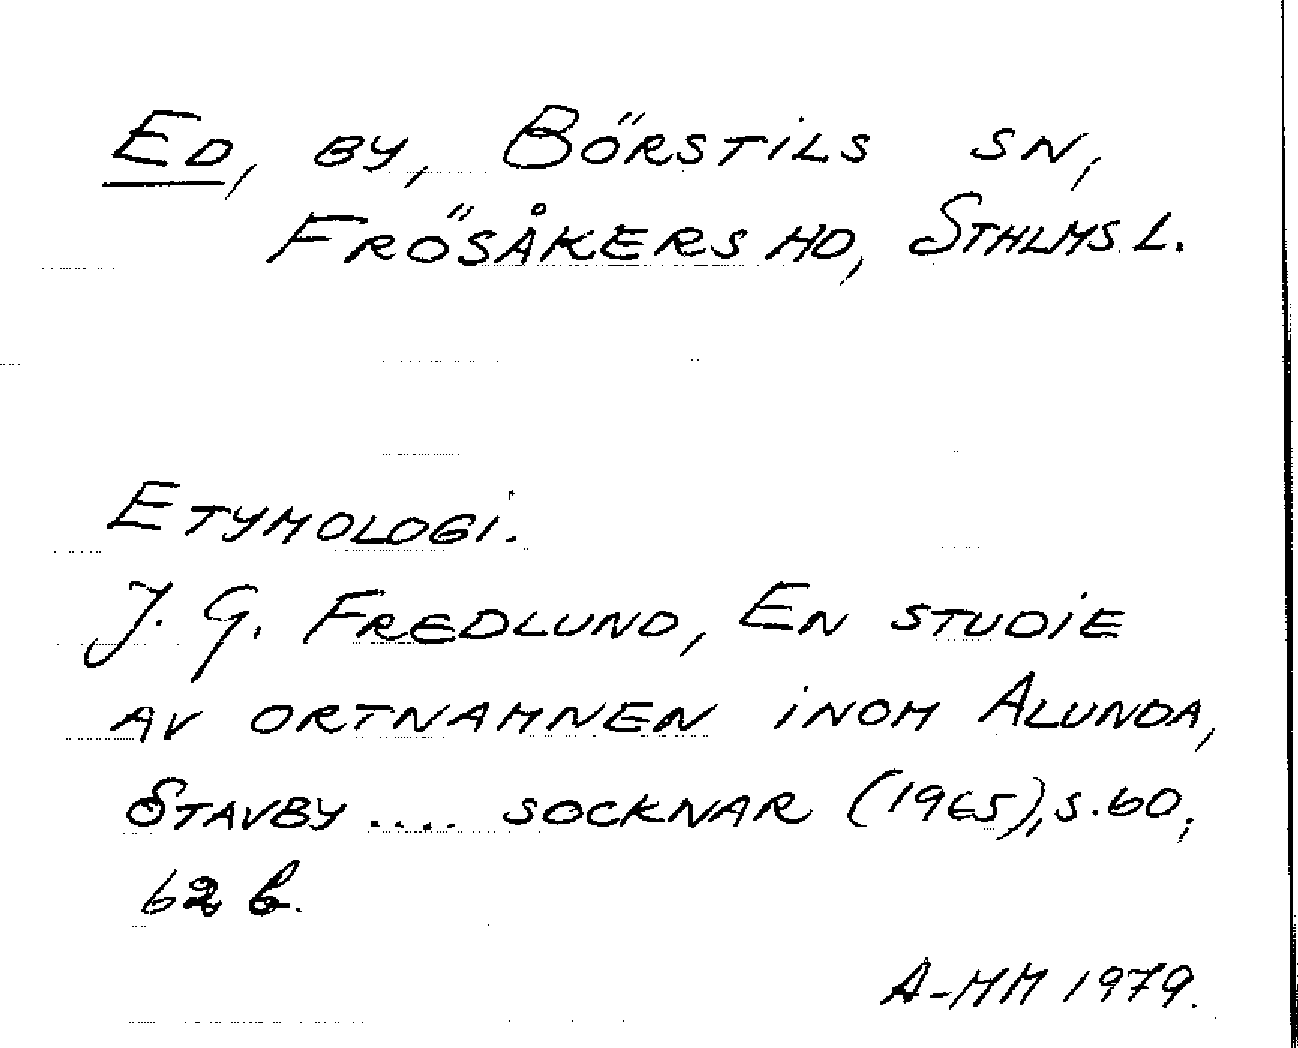 Ed, by, Börstils sn,
Frösåkers hd, Sthlms l.
Etymologi.
J. G. Fredlund, En studie
av ortnamnen inom Alunda,
Stavby .... socknar (1965), s. 60,
62 b.
A-MM 1979.